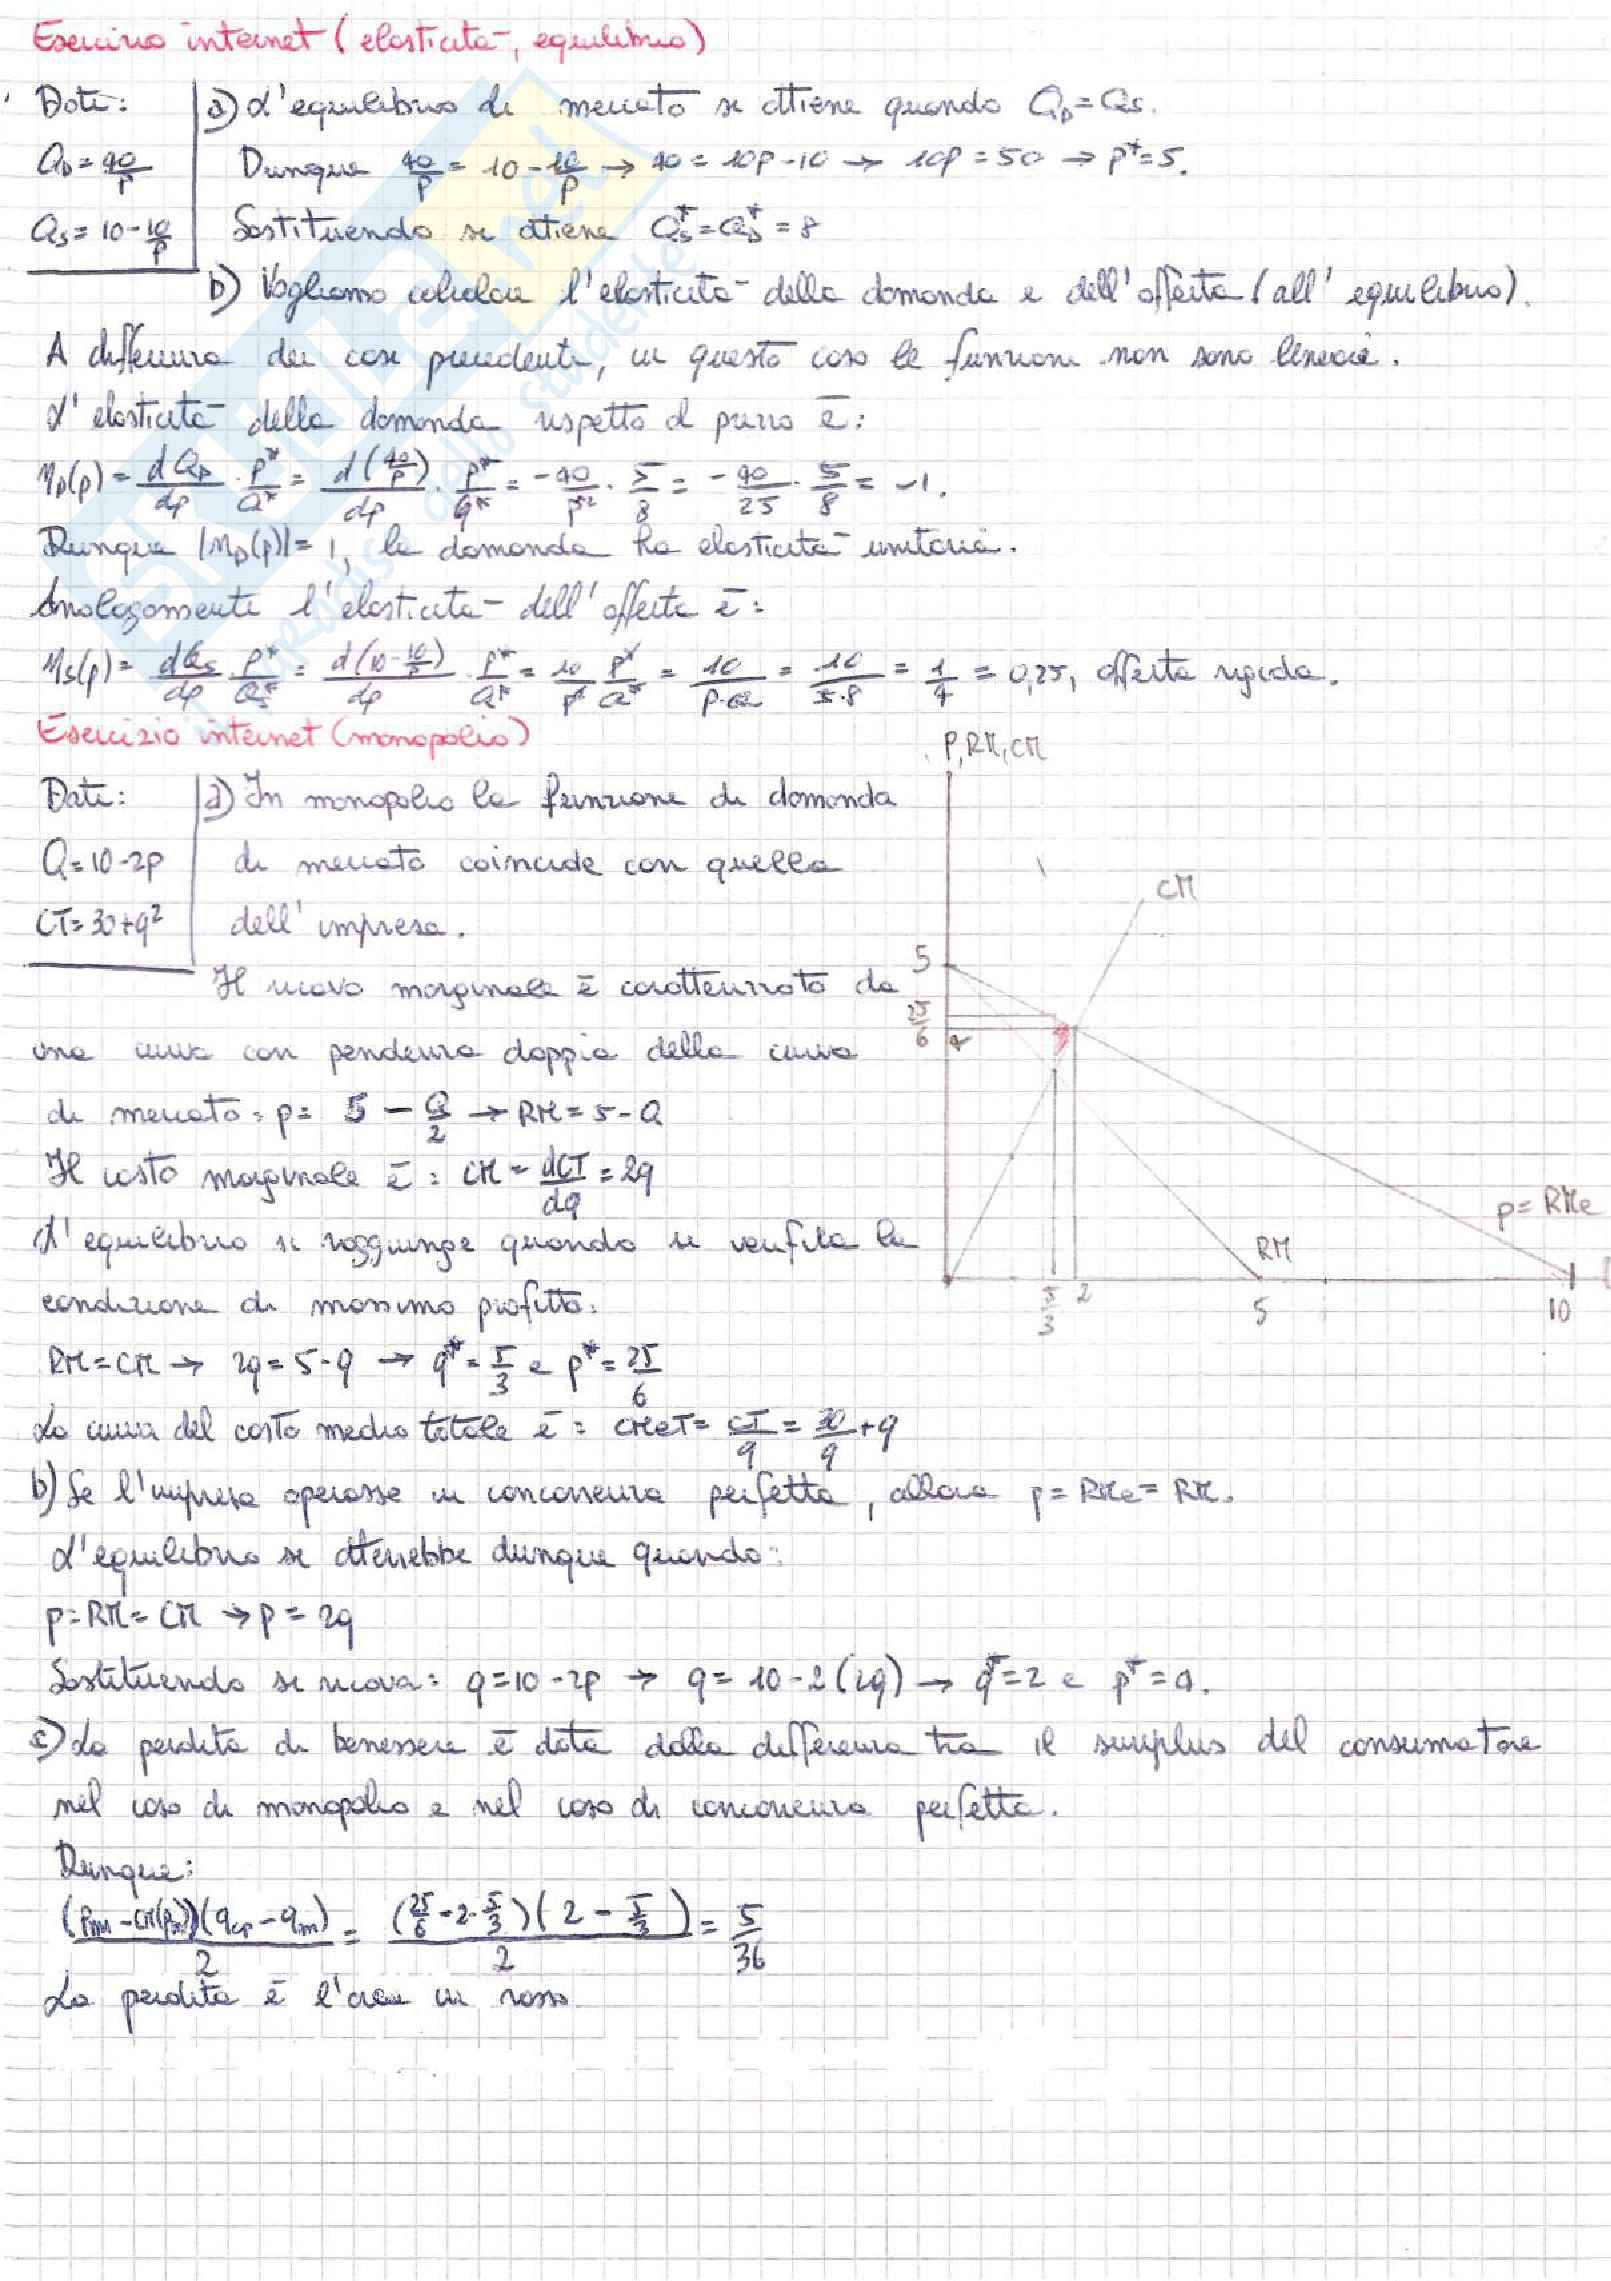 Esercizio internet (elasticità, equilibrio)
Dati:
Q_D = 40/p
Q_S = 10 - 10/p
a) L'equilibrio di mercato si ottiene quando Q_D = Q_S.
Dunque 40/p = 10 - 10/p → 40 = 10p - 10 → 10p = 50 → p* = 5.
Sostituendo si ottiene Q_S* = Q_D* = 8
b) Vogliamo calcolare l'elasticità della domanda e dell'offerta (all'equilibrio).
A differenza dei casi precedenti, in questo caso le funzioni non sono lineari.
L'elasticità della domanda rispetto al prezzo è:
η_D(p) = dQ_D/dp · p*/Q* = d(40/p)/dp · p*/Q* = -40/p² · 5/8 = -40/25 · 5/8 = -1.
Dunque |η_D(p)| = 1, la domanda ha elasticità unitaria.
Analogamente l'elasticità dell'offerta è:
η_S(p) = dQ_S/dp · p*/Q_S* = d(10 - 10/p)/dp · p*/Q* = 10/p² p*/Q* = 10/p·Q = 10/5·8 = 1/4 = 0,25, offerta rigida.
Esercizio internet (monopolio)
Dati:
Q = 10 - 2p
CT = 30 + q²
a) In monopolio la funzione di domanda
di mercato coincide con quella
dell'impresa.
Il ricavo marginale è caratterizzato da
una curva con pendenza doppia della curva
di mercato: p = 5 - Q/2 → RM = 5 - Q
Il costo marginale è: CM = dCT/dq = 2q
L'equilibrio si raggiunge quando si verifica la
condizione di massimo profitto:
RM = CM → 2q = 5 - q → q* = 5/3 e p* = 25/6
La curva del costo medio totale è: CMeT = CT/q = 30/q + q
P, RM, CM
CM
5
25/6
4
p = RMe
RM
5/3
2
5
10
b) Se l'impresa operasse in concorrenza perfetta, allora p = RMe = RM.
L'equilibrio si otterrebbe dunque quando:
p = RM = CM → p = 2q
Sostituendo si ricava: q = 10 - 2p → q = 10 - 2(2q) → q* = 2 e p* = 4.
c) La perdita di benessere è data dalla differenza tra il surplus del consumatore
nel caso di monopolio e nel caso di concorrenza perfetta.
Dunque:
(p_m - CM(p_m))(q_cp - q_m)/2 = (25/6 - 2·5/3)(2 - 5/3)/2 = 5/36
La perdita è l'area in rosso